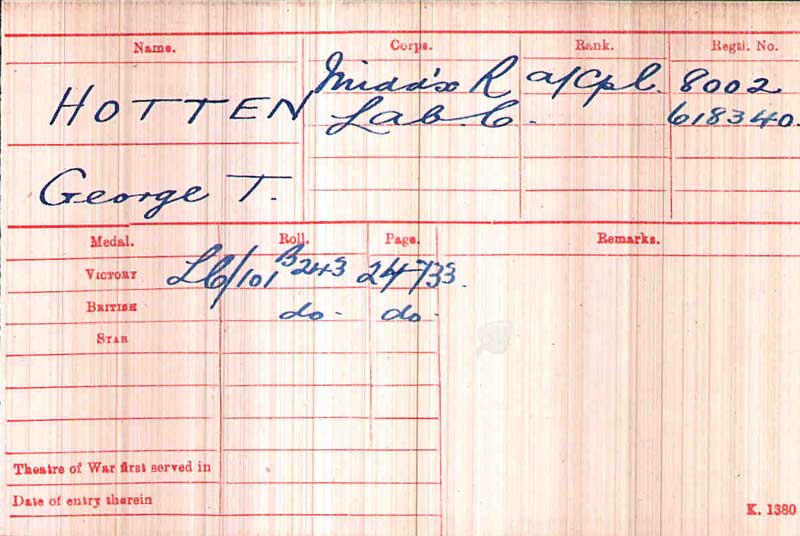 Name. Corps. Rank. Regtl. No.
HOTTEN Midd'x R a/Cpl. 8002
Lab. C. 618340.
George T.
Medal. Roll. Page. Remarks.
VICTORY LC/101 B243 24733.
BRITISH do - do -
STAR
Theatre of War first served in
Date of entry therein
K. 1380